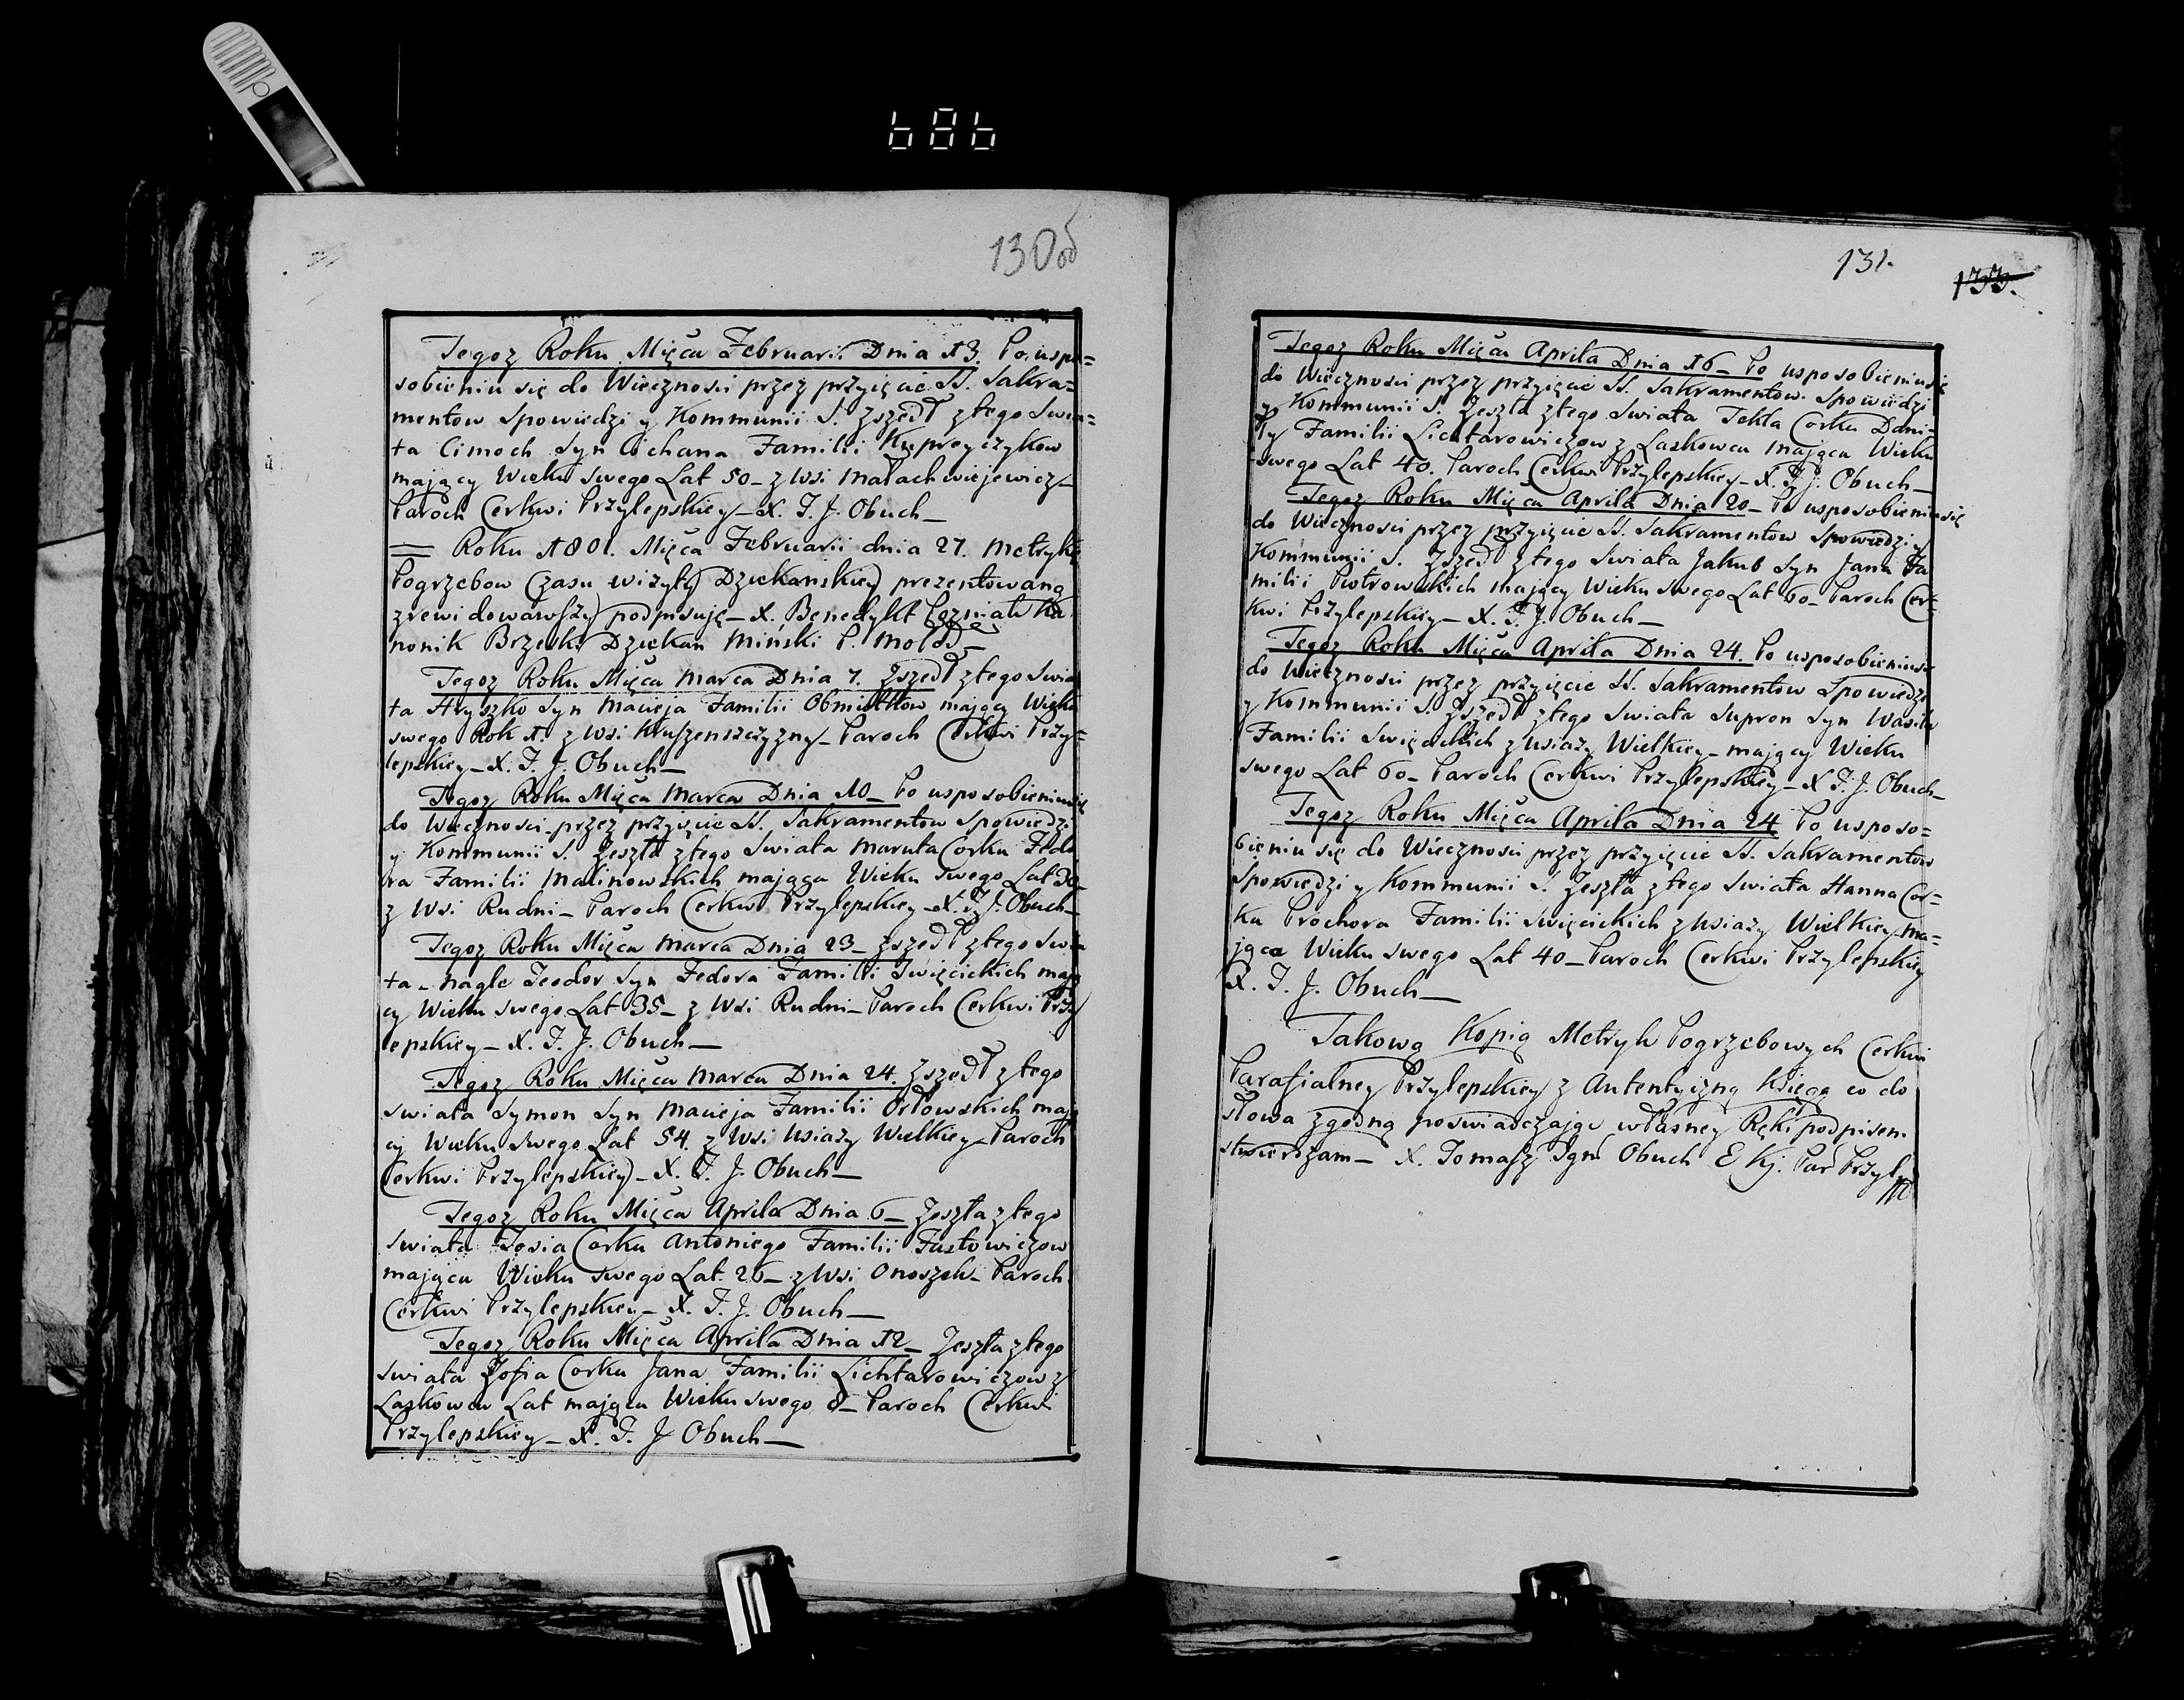 686
130об
Tegoz Roku Mięca Februarii Dnia 13. Po uspo=
sobieniu się do Wiecznosci przez przyięcie SS. Sakra=
mentow Spowiedzi y Kommunii S. Zszedł z tego Swia=
ta Cimoch Syn Cichana Familii Kupreyczykow
maiący Wieku Swego Lat 50_ z Wsi Małachwiejewicz_
Paroch Cerkwi Przylepskiey_ X. T. J. Obuch_
= Roku 1801. Mięca Februarii dnia 27. Metrykę
Pogrzebow Czasu wizyty Dziekanskiey prezentowaną
zrewidowawszy podpisuję_ X. Benedykt Pozniak Ka
nonik Brzeski Dziekan Miński P. Mołod_
Tegoz Roku Mięca Marca Dnia 7. Zszedł z tego Swia
ta Hryszko Syn Macieja Familii Obmiotkow mający Wieku
swego Rok 1. z Wsi Kruszenszczyzny_ Paroch Cerkwi Przy=
lepskiey_ X. T. J. Obuch_
Tegoz Roku Mięca Marca Dnia 10_ Po usposobieniu się
do Wiecznosci przez przyięcie SS. Sakramentow Spowiedzi
y Kommunii S. Zeszła z tego Swiata Maruta Corka Fedo
ra Familii Malinowskich mająca Wieku Swego Lat 30_
z Wsi Rudni_ Paroch Cerkwi Przylepskiey_ X. T. J. Obuch_
Tegoz Roku Mięca Marca Dnia 23_ Zszedł z tego Swia
ta_ nagle Teodor Syn Fedora Familii Swięcickich mają
cy Wieku Swego Lat 35_ z Wsi Rudni_ Paroch Cerkwi Przy
lepskiey_ X. T. J. Obuch_
Tegoz Roku Mięca Marca Dnia 24. Zszedł z tego
Swiata Symon Syn Macieja Familii Orłowskich mają
cy Wieku Swego Lat 54. z Wsi Usiazy Wielkiey_ Paroch
Cerkwi Przylepskiey_ X. T. J. Obuch_
Tegoz Roku Mięca Aprila Dnia 6_ Zeszła z tego
Swiata Zosia Corka Antoniego Familii Fastowiczow
mająca Wieku Swego Lat. 26_ z Wsi Onoszek_ Paroch
Cerkwi Przylepskiey_ X. T. J. Obuch_
Tegoz Roku Mięca Aprila Dnia 12_ Zeszła z tego
Swiata Zofia Corka Jana Familii Lichtarowiczow z
Laskowca Lat mająca Wieku swego 8_ Paroch Cerkwi
Przylepskiey_ X. T. J Obuch_
131.
133.
Tegoz Roku Mięca Aprila Dnia 16_ Po usposobieniu się
do Wiecznosci przez przyięcie SS. Sakramentow Spowiedzi
y Kommunii S. Zeszła z tego Swiata Tekla Corka Dani=
ły Familii Lichtarowiczow z Laskowca mająca Wieku
swego Lat 40. Paroch Cerkwi Przylepskiey_ X. T. J. Obuch_
Tegoz Roku Mięca Aprila Dnia 20_ Po usposobieniu się
do Wiecznosci przez przyięcie SS. Sakramentow Spowiedzi y
Kommunii S. Zszedł z tego Swiata Jakub Syn Jana Fa
milii Piotrowskich mający Wieku swego Lat 60_ Paroch Cer=
kwi Przylepskiey_ X. T. J. Obuch_
Tegoz Roku Mięca Aprila Dnia 24. Po usposobieniu się
do Wiecznosci przez przyięcie SS. Sakramentow Spowiedzi
y Kommunii S. Zszedł z tego Swiata Supron Syn Wasila
Familii Swięcickich z Usiazy Wielkiey_ mający Wieku
swego Lat 60_ Paroch Cerkwi Przylepskiey_ X T. J. Obuch_
Tegoz Roku Mięca Aprila Dnia 24 Po usposo=
bieniu się do Wiecznosci przez przyięcie SS. Sakramentow
Spowiedzi y Kommunii S. Zeszła z tego Swiata Hanna Cor=
ka Prochora Familii Swięcickich z Usiazy Wielkiey_ ma=
jąca Wieku swego Lat 40_ Paroch Cerkwi Przylepskiey
X. T. J. Obuch_
Takową Kopią Metryk Pogrzebowych Cerkwi
Parafialney Przylepskiey z Autentyczną Księgą co do
słowa zgodną poswiadczając własney Ręki podpisem
stwierdzam_ X. Tomasz Ign Obuch E Kj. Par Przyl